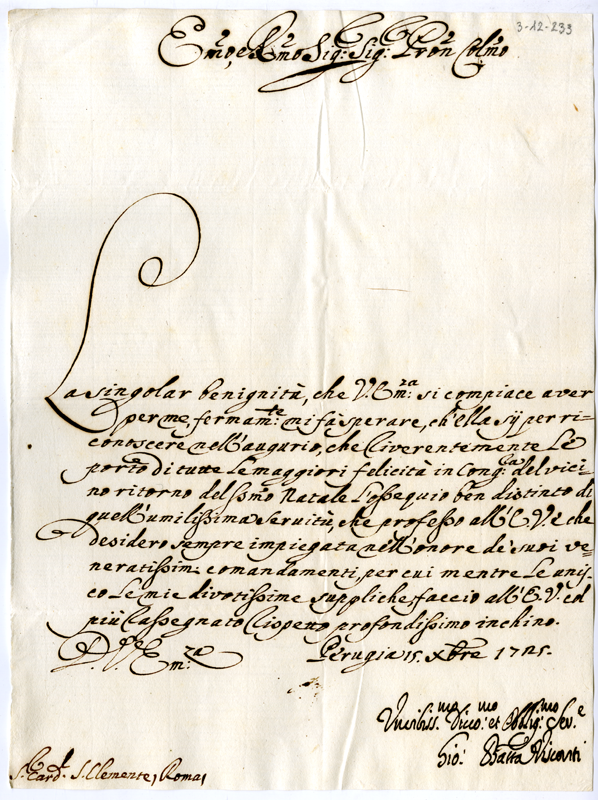 3-12-233
Emo, e Rmo Sig: Sig: Pron Colmo
La singolar benignità, che V. Em:za si compiace aver
per me, fermam:te mi fà sperare, ch'ella sij per ri=
conoscere nell'augurio, che riverentemente Le
porto di tutte Le maggiori felicità in Cong:ra del vici=
no ritorno del Ssmo Natale L'ossequio ben distinto di
quell'umilissima servitù, che professo all'E. V. e che
desidero sempre impiegata nell'onore de' suoi ve=
neratissim: comandamenti, per cui mentre Le unis=
co Le mie divotissime suppliche, faccio all'E. V. col
più rassegnato rispetto profondissimo inchino.
D. V. Em:za Perugia 15. Xbre 1725.
Umiliss:mo Divo:mo et Obblig:mo Ser.e
Gio: Batta Visconti
S. Card. S. Clemente, Roma